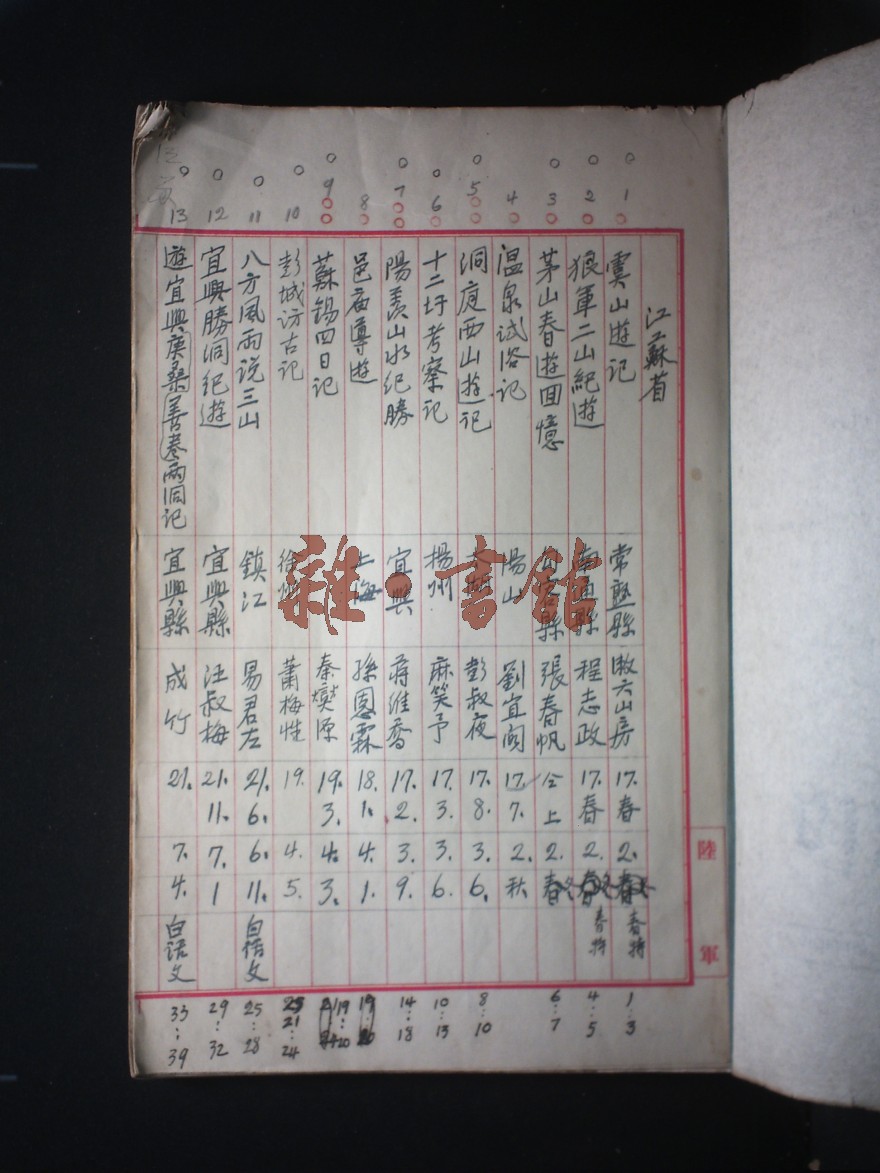 江蘇省
1 虞山遊記 常熟縣 六山房 17.春 2. 春特 1:3
2 狼軍二山紀遊 南通縣 程志政 17.春 2. 春特 4:5
3 茅山春遊回憶 句容縣 張春帆 仝上 2. 春 6:7
4 温泉試浴記 湯山 劉宜閣 17. 7. 2. 秋
5 洞庭西山遊記 彭叔夜 17. 8. 3. 6. 8:10
6 十二圩考察記 揚州 麻笑予 17. 3. 3. 6. 10:13
7 陽羨山水纪勝 宜興 蔣維喬 17. 2. 3. 9. 14:18
8 邑庙導遊 上海 孫恩霖 18. 1. 4. 1.
9 蘇錫四日记 秦爕源 19. 3. 4. 3. 19:20
10 彭城访古記 徐州 蕭梅性 19. 4. 5. 21:24
11 八方風雨说三山 鎮江 易君左 21. 6. 6. 11. 白话文 25:28
12 宜興勝洞纪遊 宜興縣 汪叔梅 21. 11. 7. 1 29:32
13 遊宜興庚桑善卷两洞记 宜興縣 成竹 21. 7. 4. 白话文 33:39
陸軍
雜·書館